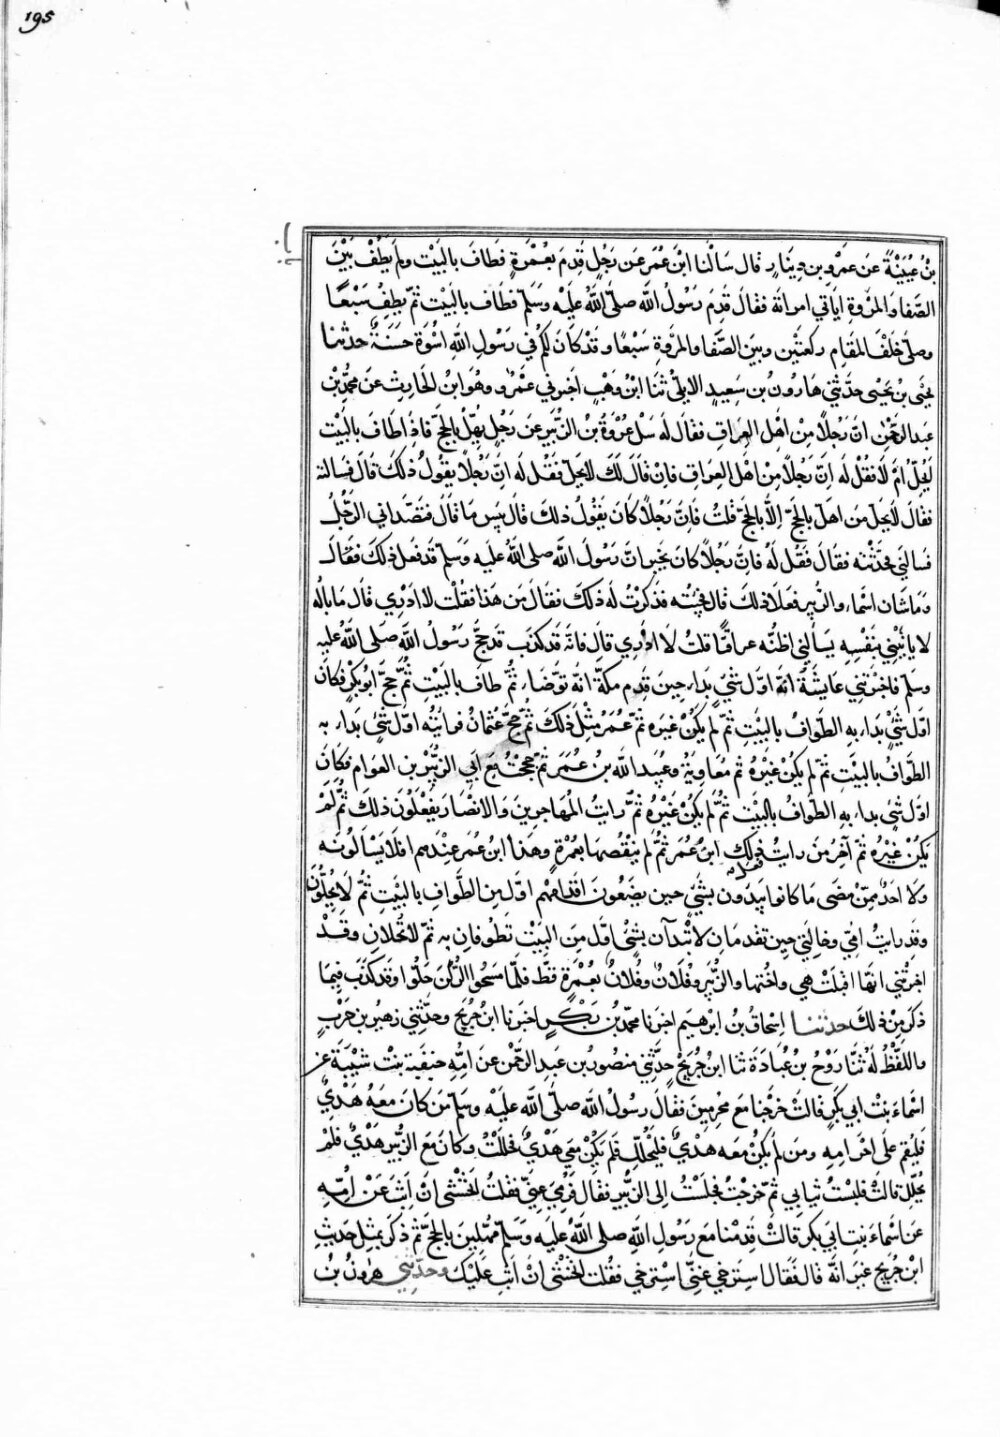 195
بن عيينة عن عمرو بن دينار قال سالنا ابن عمر عن رجل قدم بعمرة فطاف بالبيت ولم يطف بين
الصفا والمروة اياتي امراته فقال قدم رسول الله صلى الله عليه وسلم فطاف بالبيت ثم يطف سبعا
وصلى خلف المقام ركعتين وبين الصفا والمروة سبعا وقد كان لكم في رسول الله اسوة حسنة حدثنا
يحيى بن يحيى حدثني هارون بن سعيد الايلي ثنا ابن وهب اخبرني عمرو وهو ابن الحارث عن محمد بن
عبد الرحمن ان رجلا من اهل العراق فقال له سل عروة بن الزبير عن رجل يهل بالحج فاذا طاف بالبيت
ايحل ام لا فقل له ان رجلا من اهل العراق فان قال لك لا يحل فقل له ان رجلا يقول ذلك قال فسالته
فقال لا يحل من اهل بالحج الا بالحج قلت فان رجلا كان يقول ذلك قال بيس ما قال فتصداني الرجل
فسالني فحدثته فقال فقل له فان رجلا كان يخبر ان رسول الله صلى الله عليه وسلم قد فعل ذلك فقال
وما شان اسماء والزبير فعلا ذلك قال فجيته فذكرت له ذلك فقال من هذا فقلت لا ادري قال ما باله
لا ياتيني بنفسه يسالني اظنه عراقيا قلت لا ادري قال فانه قد كذب قد حج رسول الله صلى الله عليه
وسلم فاخبرتني عايشة انه اول شي بداء حين قدم مكة انه توضاء ثم طاف بالبيت ثم حج ابو بكر فكان
اول شي بداء به الطواف بالبيت ثم لم يكن غيره ثم عمر مثل ذلك ثم حج عثمان فرايته اول شي بداء به
الطواف بالبيت ثم لم يكن غيره ثم معاوية وعبيد الله بن عمر ثم حججت مع ابي الزبير بن العوام فكان
اول شي بداء به الطواف بالبيت ثم لم يكن غيره ثم رايت المهاجرين والانصار يفعلون ذلك ثم لم
يكن غيره ثم آخر من رايت فعل ذلك ابن عمر ثم لم ينقصها بعمرة وهذا ابن عمر عندهم افلا يسالونه
ولا احد ممن مضى ما كانوا يبدون بشي حين يضعون اقدامهم اول من الطواف بالبيت ثم لا يحلون
وقد رايت امي وخالتي حين تقدمان لا تبدآن بشي اول من البيت تطوفان به ثم لا تحلان وقد
اخبرتني انها اقبلت هي واختها والزبير وفلان وفلان بعمرة قط فلما مسحوا الركن حلوا وقد كذب فيما
ذكر من ذلك حدثنا اسحاق بن ابرهيم اخبرنا محمد بن بكر اخبرنا ابن جريج وحدثني زهير بن حرب
واللفظ له ثنا روح بن عبادة ثنا ابن جريج حدثني منصور بن عبد الرحمن عن امه حنفية بنت شيبة عن
اسماء بنت ابي بكر قالت خرجنا مع محرمين فقال رسول الله صلى الله عليه وسلم من كان معه هدي
فليقم على احرامه ومن لم يكن معه هدي فليحلل فلم يكن معي هدي فحللت وكان مع الزبير هدي فلم
يحلل قالت فلبست ثيابي ثم خرجت فجلست الى الزبير فقال قومي عني فقلت اتخشى ان اثب عن امه
عن اسماء بنت ابي بكر قالت قدمنا مع رسول الله صلى الله عليه وسلم مهلين بالحج ثم ذكر بمثل حديث
ابن جريج غير انه قال فقال استرخي عني استرخي فقلت اتخشى ان اثب عليك وحدثني هرون بن